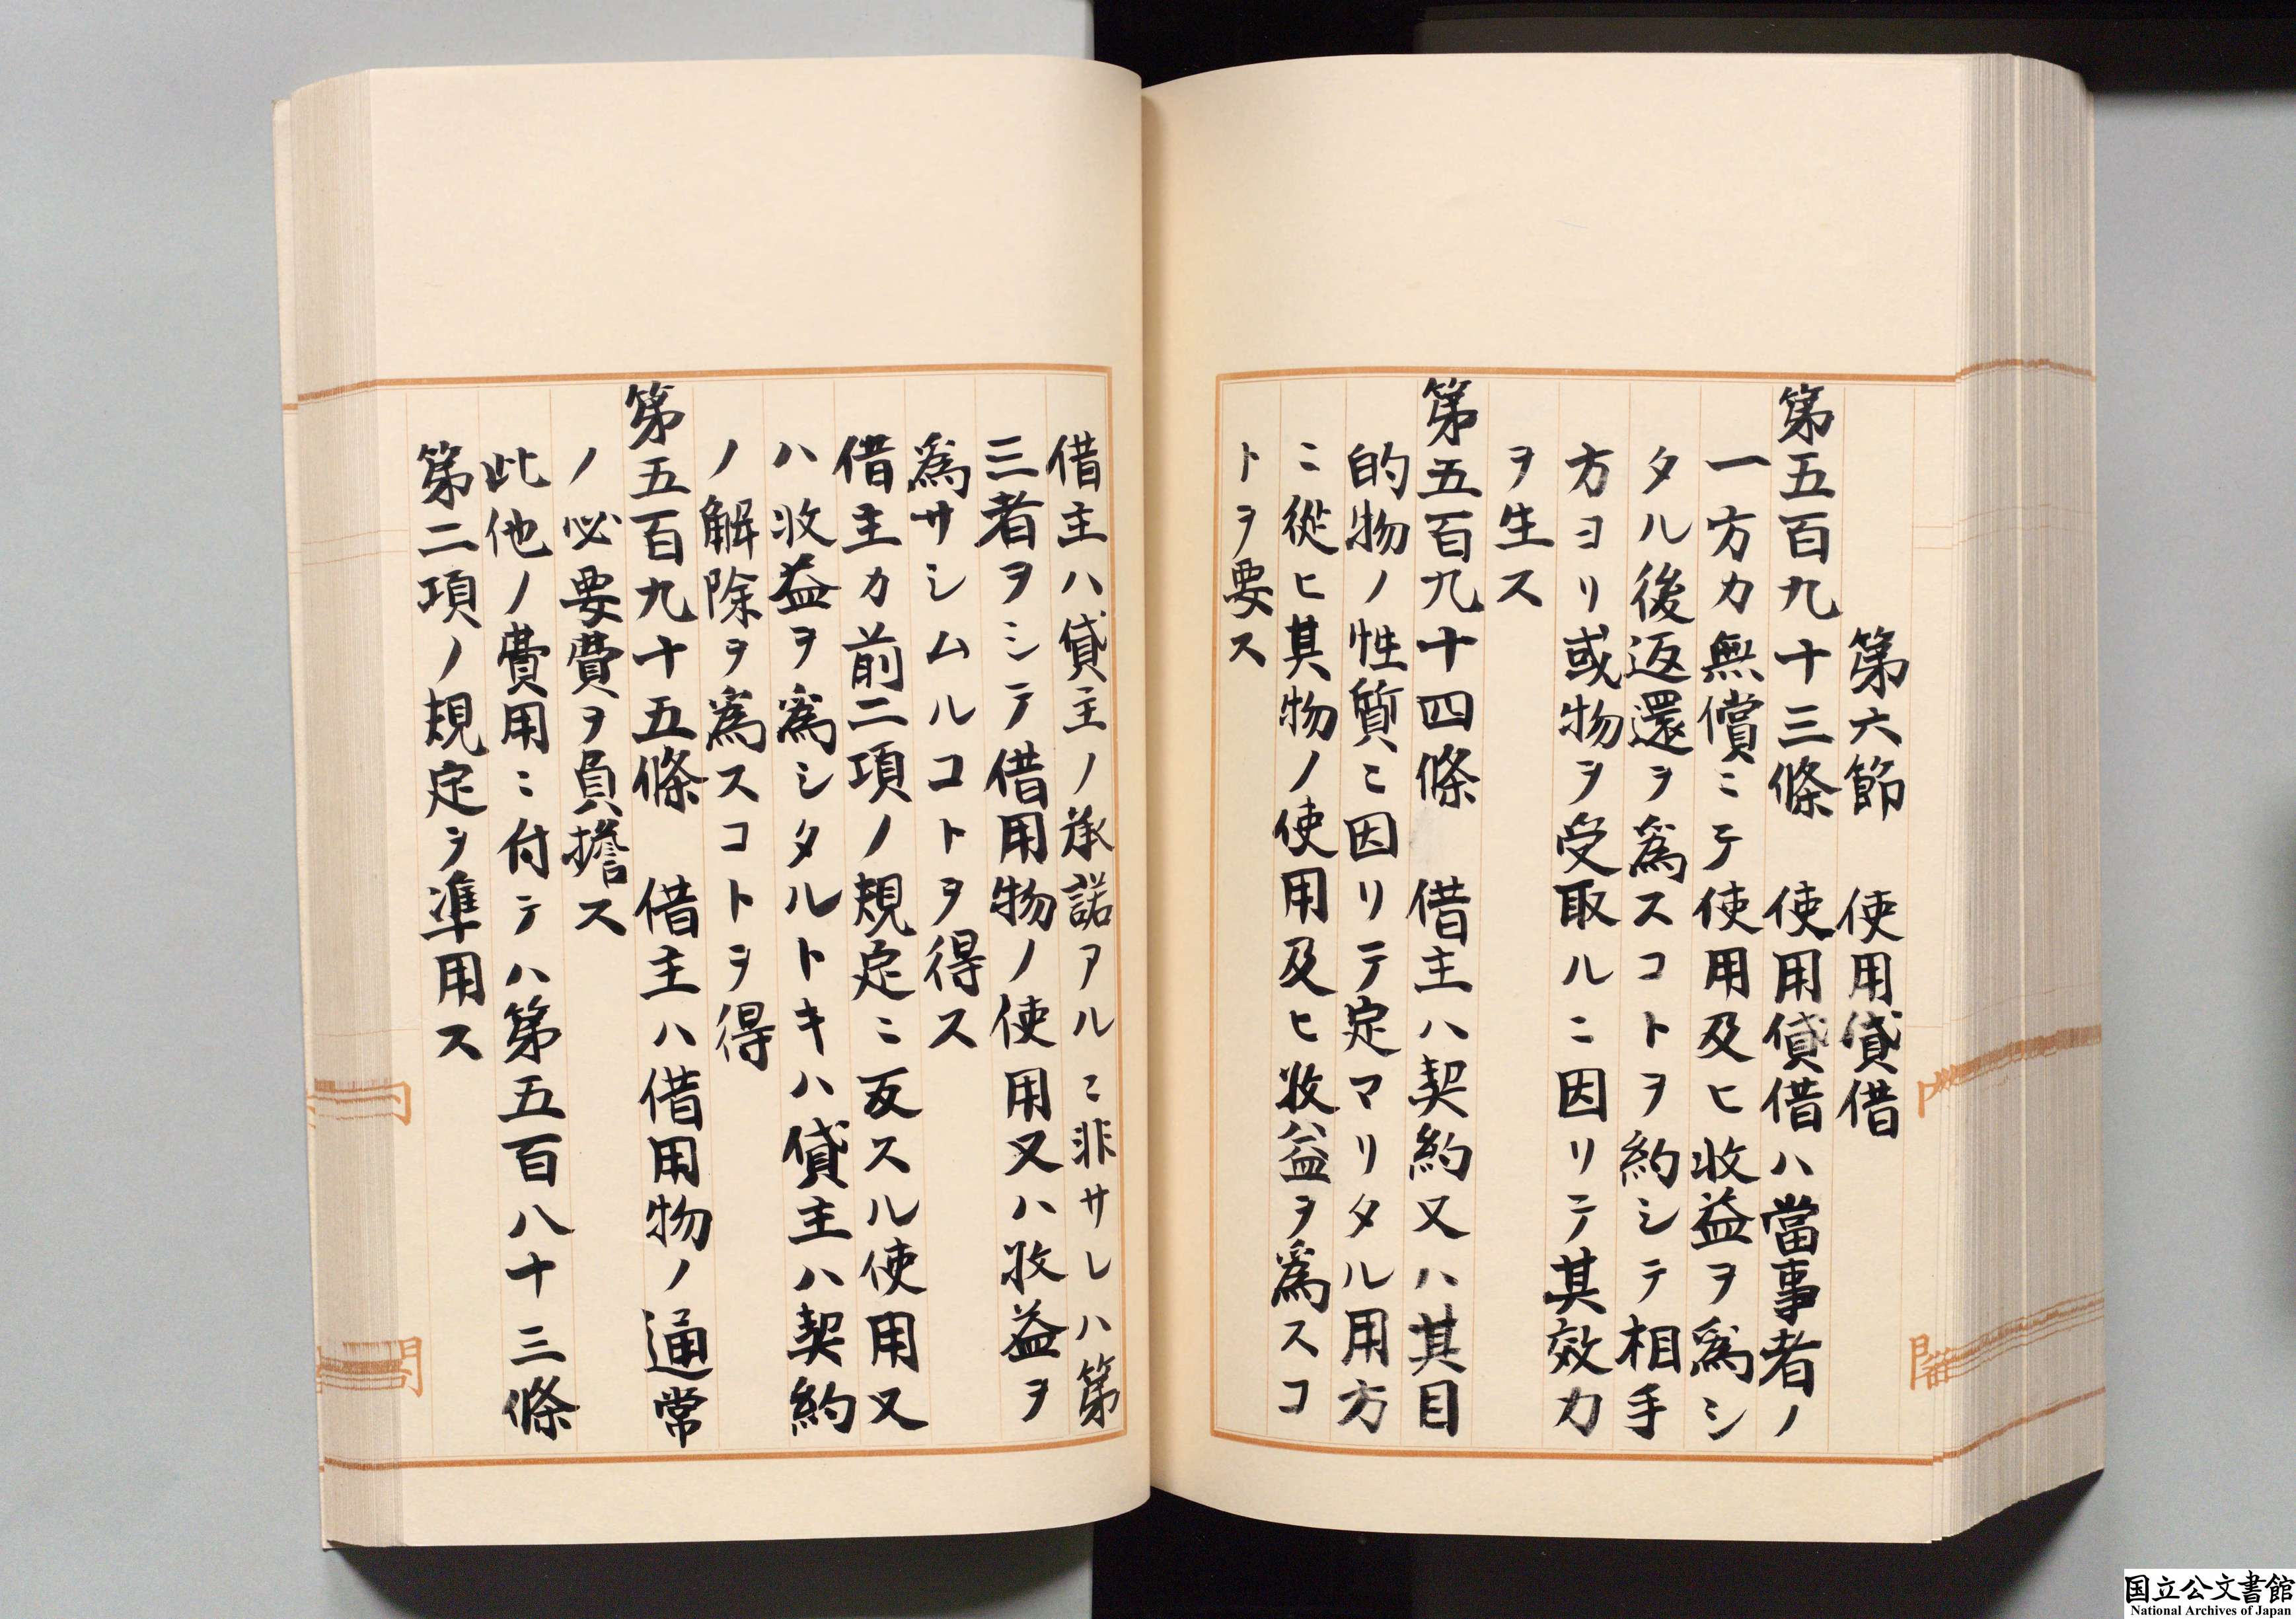 第六節 使用貸借
第五百九十三條 使用貸借ハ當事者ノ
一方カ無償ニテ使用及ヒ收益ヲ爲シ
タル後返還ヲ爲スコトヲ約シテ相手
方ヨリ或物ヲ受取ルニ因リテ其效力
ヲ生ス
第五百九十四條 借主ハ契約又ハ其目
的物ノ性質ニ因リテ定マリタル用方
ニ從ヒ其物ノ使用及ヒ收益ヲ爲スコ
トヲ要ス
借主ハ貸主ノ承諾アルニ非サレハ第
三者ヲシテ借用物ノ使用又ハ收益ヲ
爲サシムルコトヲ得ス
借主カ前二項ノ規定ニ反スル使用又
ハ收益ヲ爲シタルトキハ貸主ハ契約
ノ解除ヲ爲スコトヲ得
第五百九十五條 借主ハ借用物ノ通常
ノ必要費ヲ負擔ス
此他ノ費用ニ付テハ第五百八十三條
第二項ノ規定ヲ準用ス
国立公文書館
National Archives of Japan